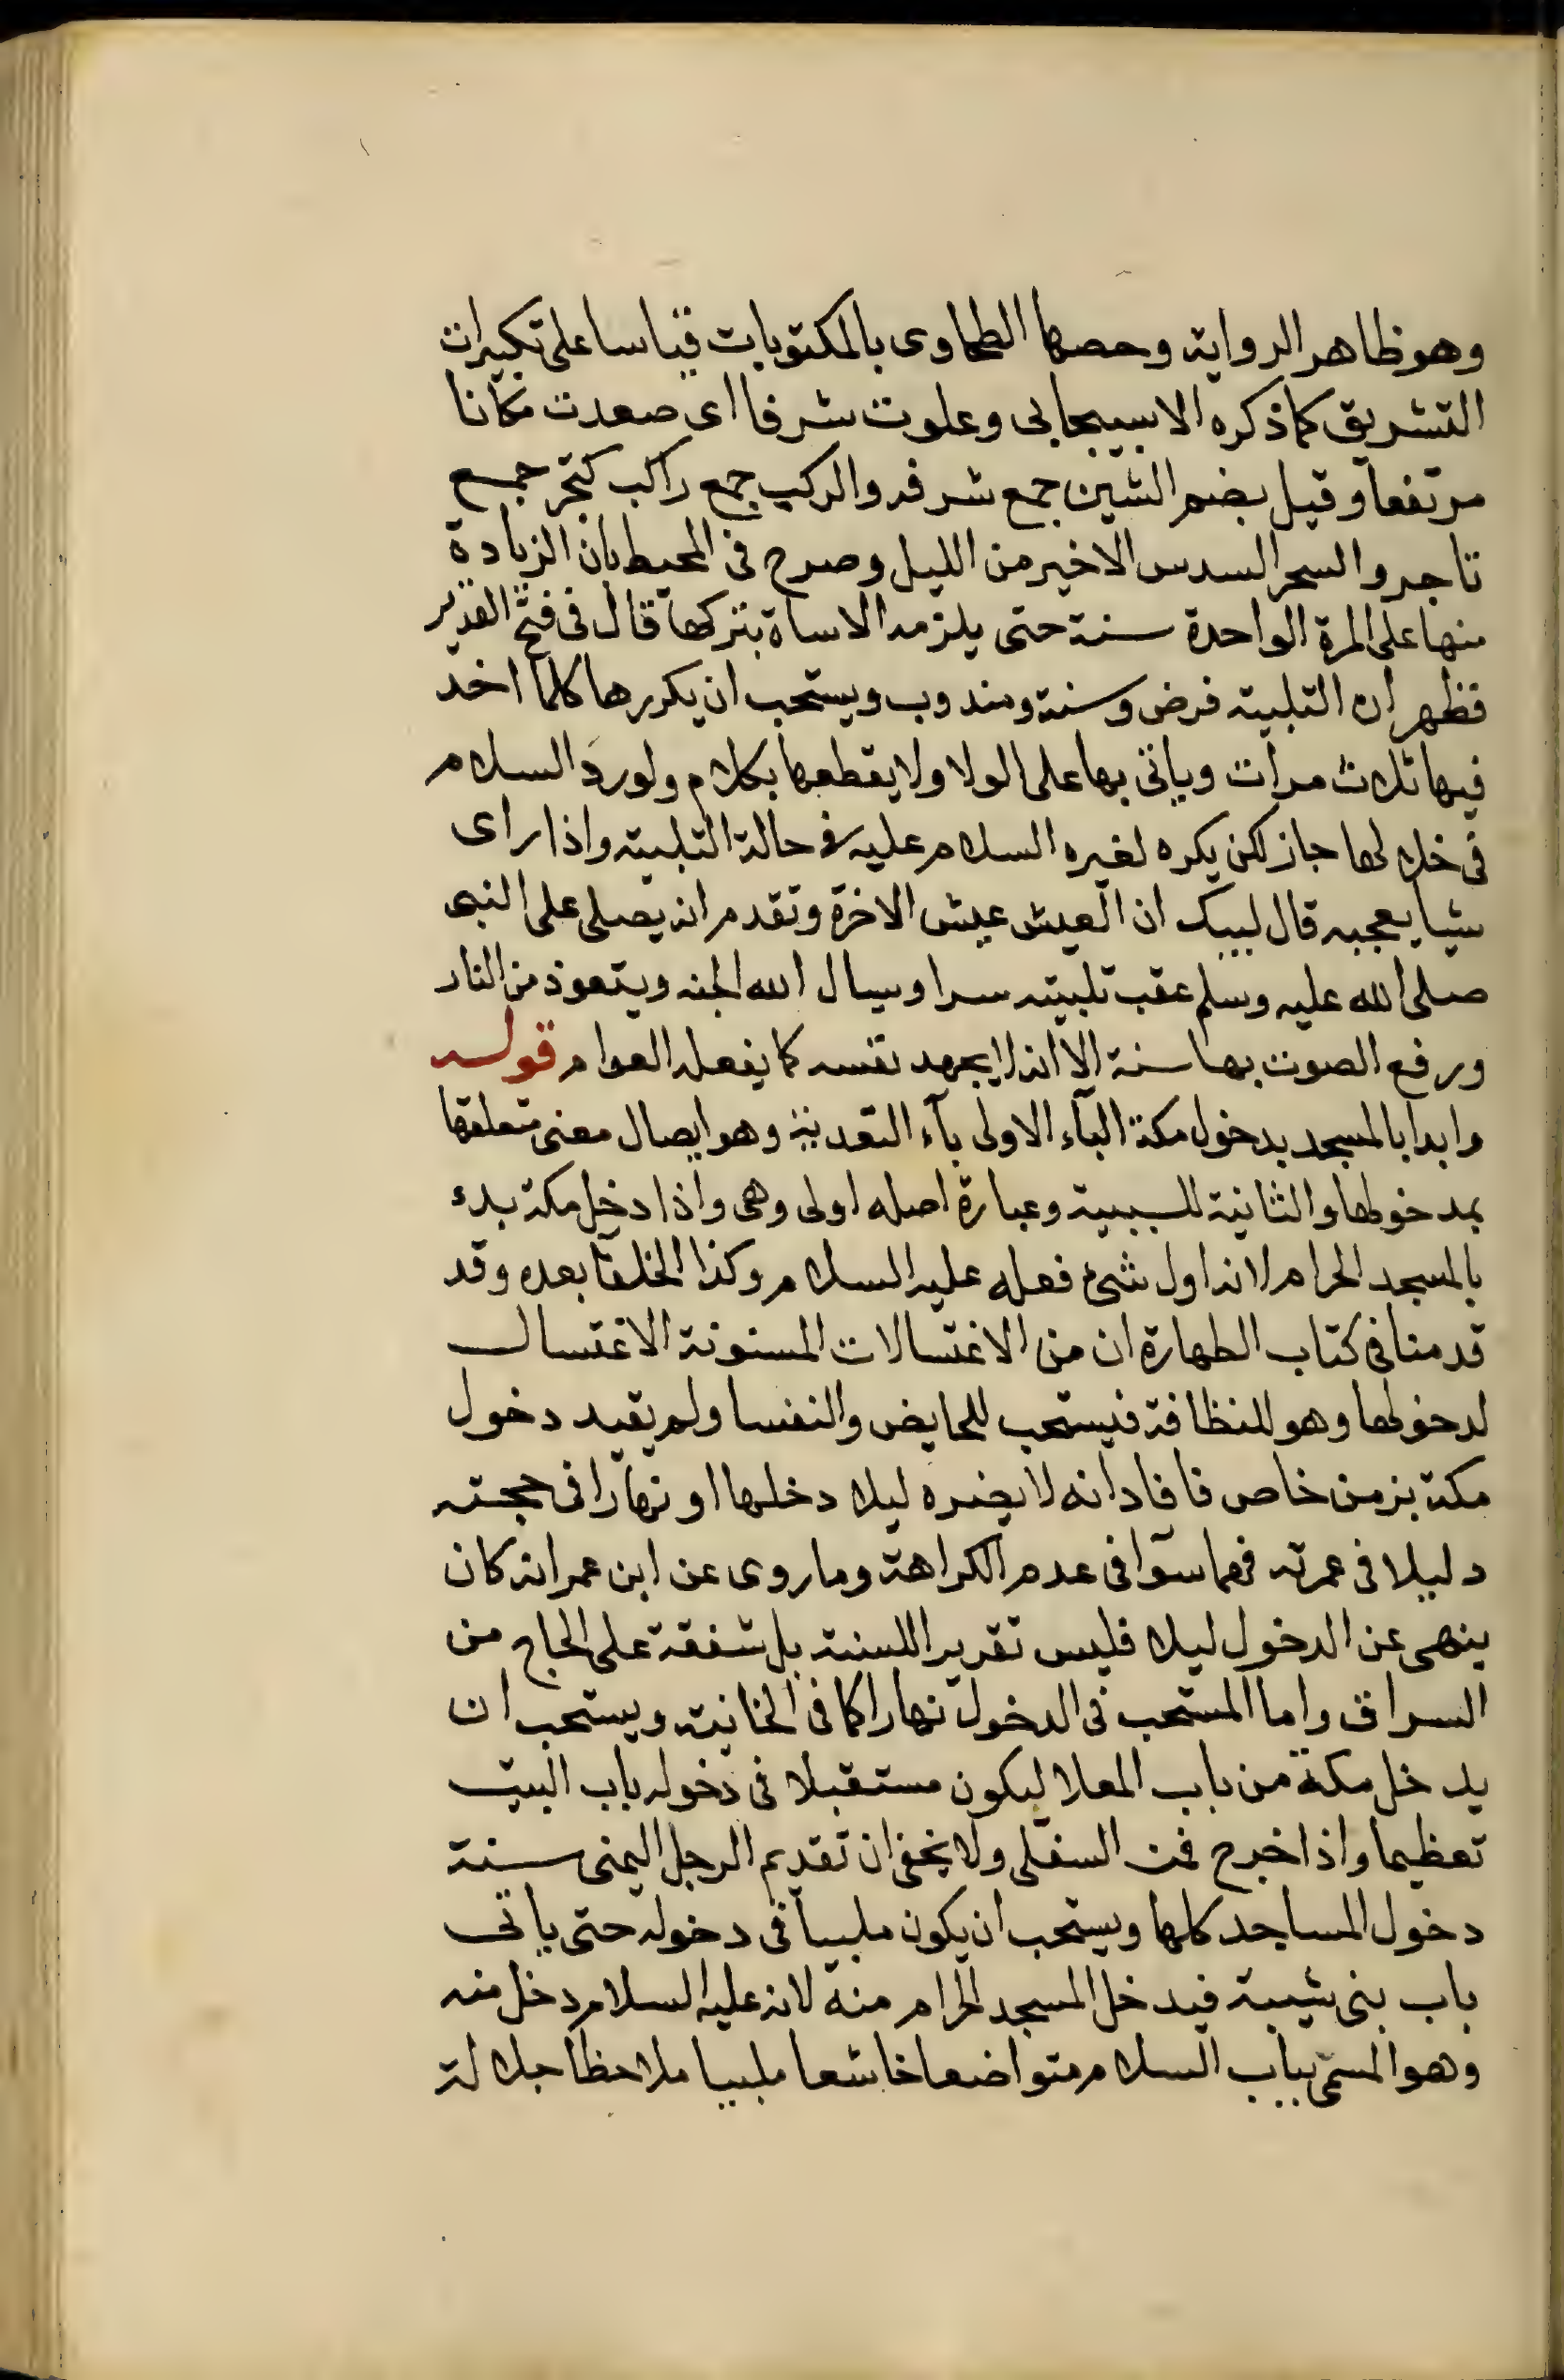 وهو ظاهر الرواية وحصها الطحاوى بالمكتوبات قياسا على تكبيرات
التشريق كما ذكره الاسبيجابى وعلوت شرفا اى صعدت مكانا
مرتفعا وقيل بضم الشين جمع شرفه والركب جمع راكب كتجر جمع
تاجر والسحر السدس الاخير من الليل وصرح فى المحيط بان الزيادة
منها على المرة الواحدة سنة حتى يلزمه الاساة بتركها قال فى فتح القدير
فظهر ان التلبية فرض وسنة ومندوب ويستحب ان يكررها كلما اخد
فيها ثلاث مرات وياتى بها على الولا ولا يقطعها بكلام ولو رد السلام
فى خلالها جاز لكن يكره لغيره السلام عليه فى حالة التلبية واذا راى
شيا يعجبه قال لبيك ان العيش عيش الاخرة وتقدم انه يصلى على النبى
صلى الله عليه وسلم عقب تلبيته سرا ويسال الله الجنه ويتعوذ من النار
ورفع الصوت بها سنة الا انه لا يجهد نفسه كما يفعله العوام قوله
وابدا بالمسجد بدخول مكة الباء الاولى باء التعدية وهو ايصال معنى متعلقها
بمدخولها والثانية للسببية وعبارة اصله اولى وهى واذا دخل مكة بدء
بالمسجد الحرام لانه اول شئ فعله عليه السلام وكذا الخلفا بعده وقد
قدمنا فى كتاب الطهارة ان من الاغتسالات المسنونة الاغتسال
لدخولها وهو للنظافة فيستحب للحايض والنفسا ولم يقيد دخول
مكة بزمن خاص فافاد انه لا يضره ليلا دخلها او نهارا فى حجته
دليلا فى عمرته فهما سوآ فى عدم الكراهة وما روى عن ابن عمر انه كان
ينهى عن الدخول ليلا فليس تقريرا للسنة بل شفقة على الحاج من
السراق واما المستحب فى الدخول نهارا كما فى الخانية ويستحب ان
يدخل مكة من باب المعلا ليكون مستقبلا فى دخوله باب البيت
تعظيما واذا خرج فمن السفلى ولا يخفى ان تقديم الرجل اليمنى سنة
دخول المساجد كلها ويستحب ان يكون ملبيا فى دخوله حتى ياتى
باب بنى شيبة فيدخل المسجد الحرام منه لانه عليه السلام دخل منه
وهو المسمى بباب السلام متواضعا خاشعا ملبيا ملاحظا جلالة